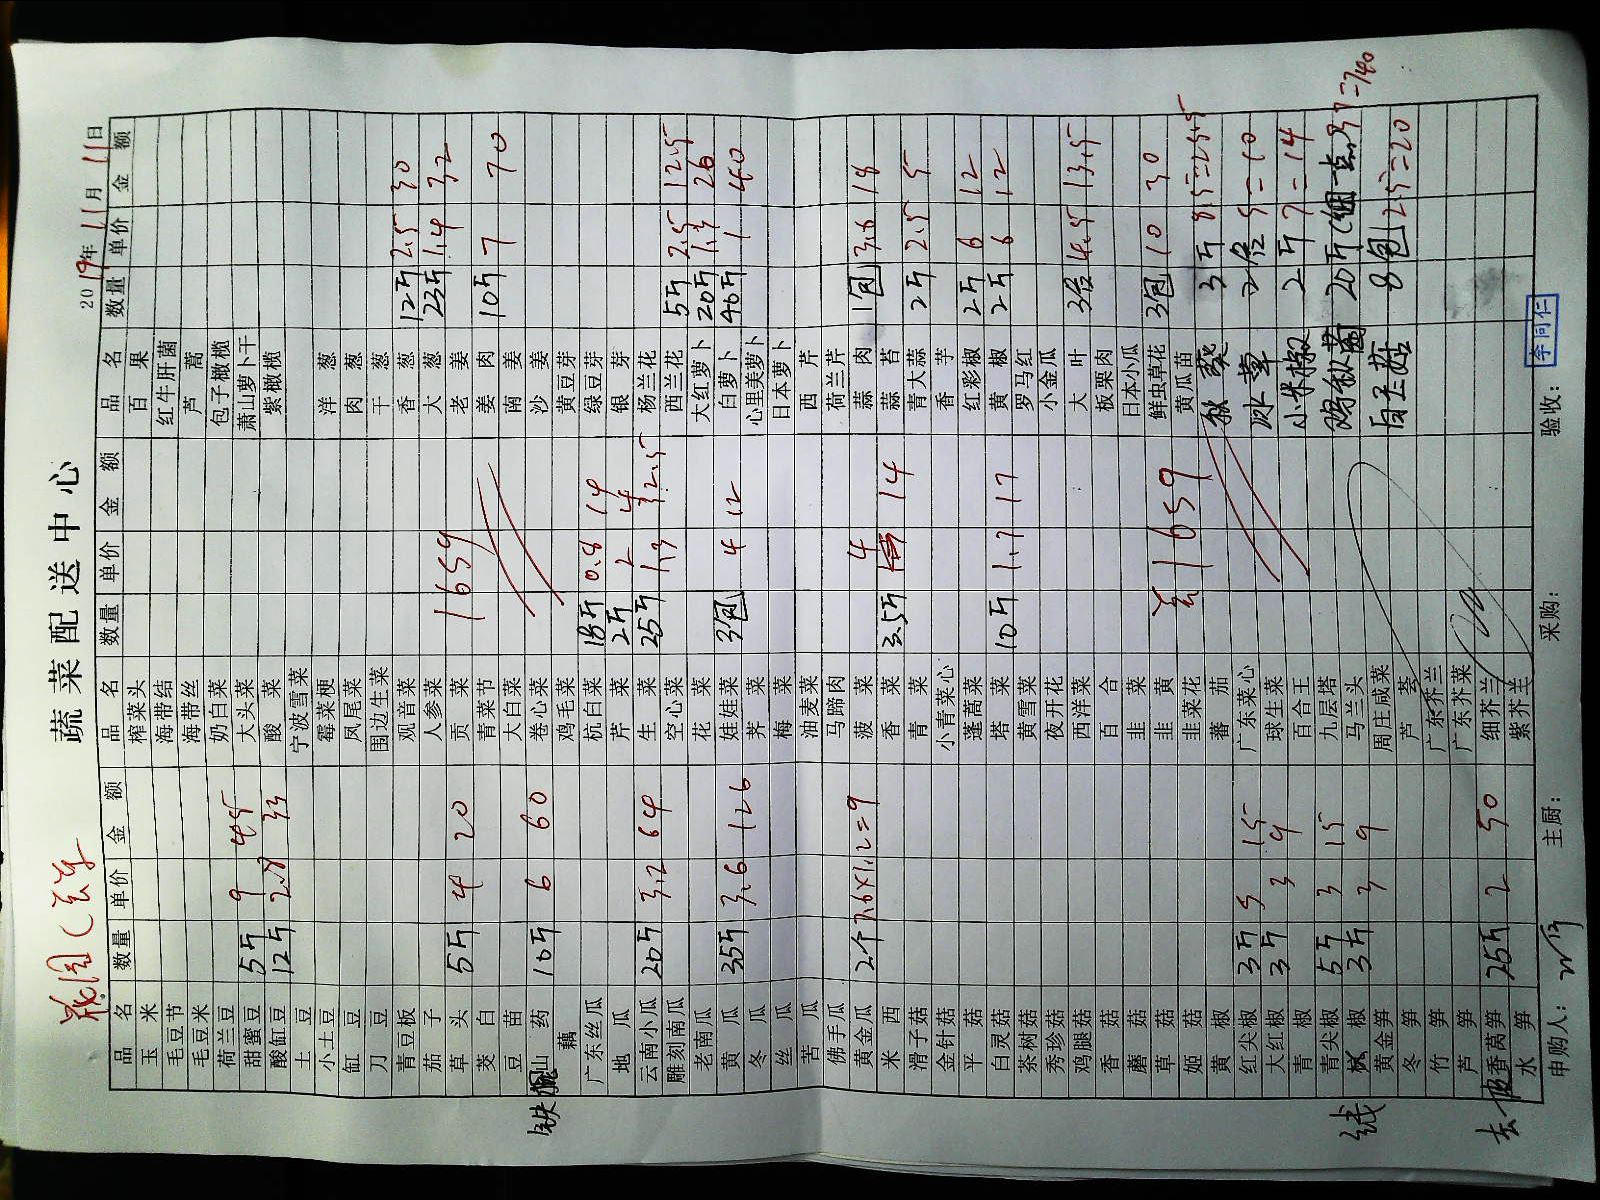 蔬菜配送中心
2019年11月11日
品名 数量 单价 金额 品名 数量 单价 金额 品名 数量 单价 金额
玉米 榨菜头 百果
毛豆节 海带结 红牛肝菌
毛豆米 海带丝 芦蒿
荷兰豆 奶白菜 包子橄榄
甜蜜豆 5斤 9 45 大头菜 萧山萝卜干
酸缸豆 12斤 2.8 33 酸菜 紫橄榄
土豆 宁波雪菜
小土豆 霉菜梗 洋葱
缸豆 凤尾菜 肉葱
刀豆 围边生菜 干葱
青豆板 观音菜 香葱 12斤 2.5 30
茄子 人参菜 大葱 23斤 1.4 32
草头 5斤 4 20 贡菜 1659 老姜
茭白 青菜节 姜肉 10斤 7 70
豆苗 大白菜 南姜
铁棍山药 10斤 6 60 卷心菜 沙姜
藕 鸡毛菜 黄豆芽
广东丝瓜 杭白菜 18斤 0.8 14 绿豆芽
地瓜 芹菜 2斤 2 4 银芽
云南小瓜 20斤 3.2 64 生菜 25斤 1.3 32.5 杨兰花
雕刻南瓜 空心菜 西兰花 5斤 2.5 12.5
老南瓜 花菜 大红萝卜 20斤 1.3 26
黄瓜 35斤 3.6 126 娃娃菜 3包 4 12 白萝卜 40斤 1 40
冬瓜 荠菜 心里美萝卜
丝瓜 梅菜 日本萝卜
苦瓜 油麦菜 西芹
佛手瓜 马蹄肉 荷兰芹
黄金瓜 2个 7.6×1.2=9 菠菜 蒜肉 1包 3.6 18
米西 香菜 3.5斤 4 14 蒜苔
滑子菇 青菜 青大蒜 2斤 2.5 5
金针菇 小青菜心 香芋
平菇 蓬蒿菜 红彩椒 2斤 6 12
白灵菇 塔菜 10斤 1.7 17 黄椒 2斤 6 12
茶树菇 黄雪菜 罗马红
秀珍菇 夜开花 小金瓜
鸡腿菇 西洋菜 大叶 3份 4.5 13.5
香菇 百合 板栗肉
蘑菇 韭菜 日本小瓜
草菇 韭黄 鲜虫草花 3包 10 30
姬菇 韭菜花 1659 黄瓜苗
黄椒 蕃茄 秋葵 3斤 8.5=25.5
红尖椒 3斤 5 15 广东菜心 冰草 2份 5=10
大红椒 3斤 3 9 球生菜
青椒 百合王 小米椒 2斤 7=14
青尖椒 5斤 3 15 九层塔
线椒 3斤 3 9 马兰头 鸡枞菌 20斤
黄金笋 周庄咸菜 白玉菇 8包 2.5=20
冬笋 芦荟
竹笋 广东芥兰
芦笋 广东芥菜
去皮香莴笋 25斤 2 50 细芥兰
水笋 紫芥兰
申购人: 主厨: 采购: 验收: